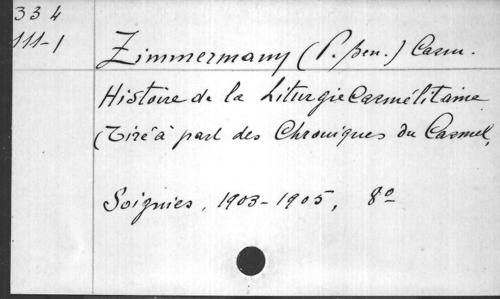 334
111-1
Zimmermann (P. Ben.) Carm.
Histoire de la Liturgie Carmélitaine
(Tiré à part des Chroniques du Carmel,
Soignies, 1903-1905, 8º